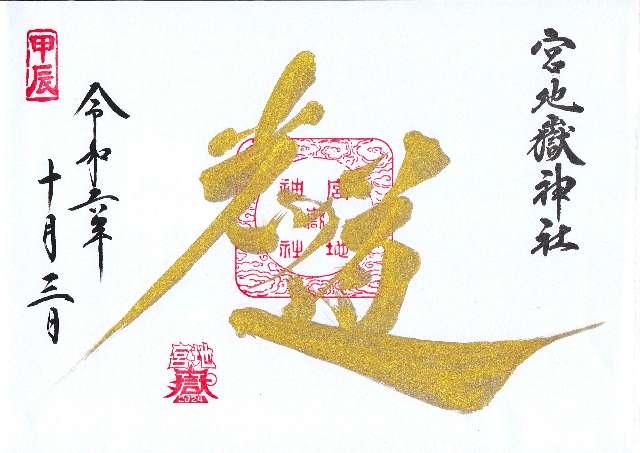 宮地嶽神社
光道
宮地
嶽
神社
令和六年
十月三日
甲辰
宮地
嶽
2024